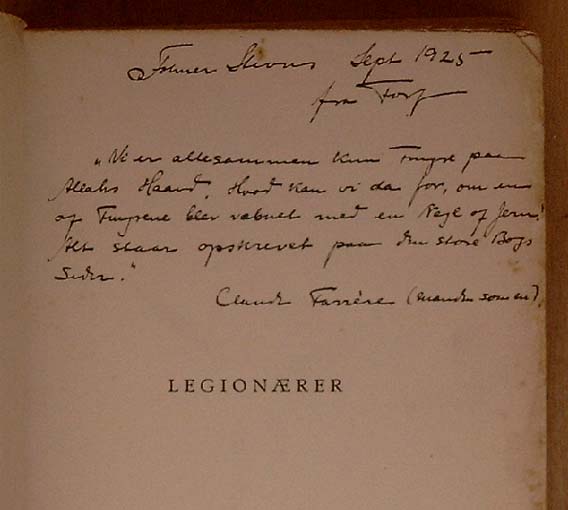 Sept 1925
fra
"Vi er allesammen kun Fingre paa
Allahs Haand. Hvad kan vi da for, om en
af Fingrene blev væbnet med en Negl af Jern!
Alt staar opskrevet paa den store Bogs
Sider."
Claude Farrère
LEGIONÆRER